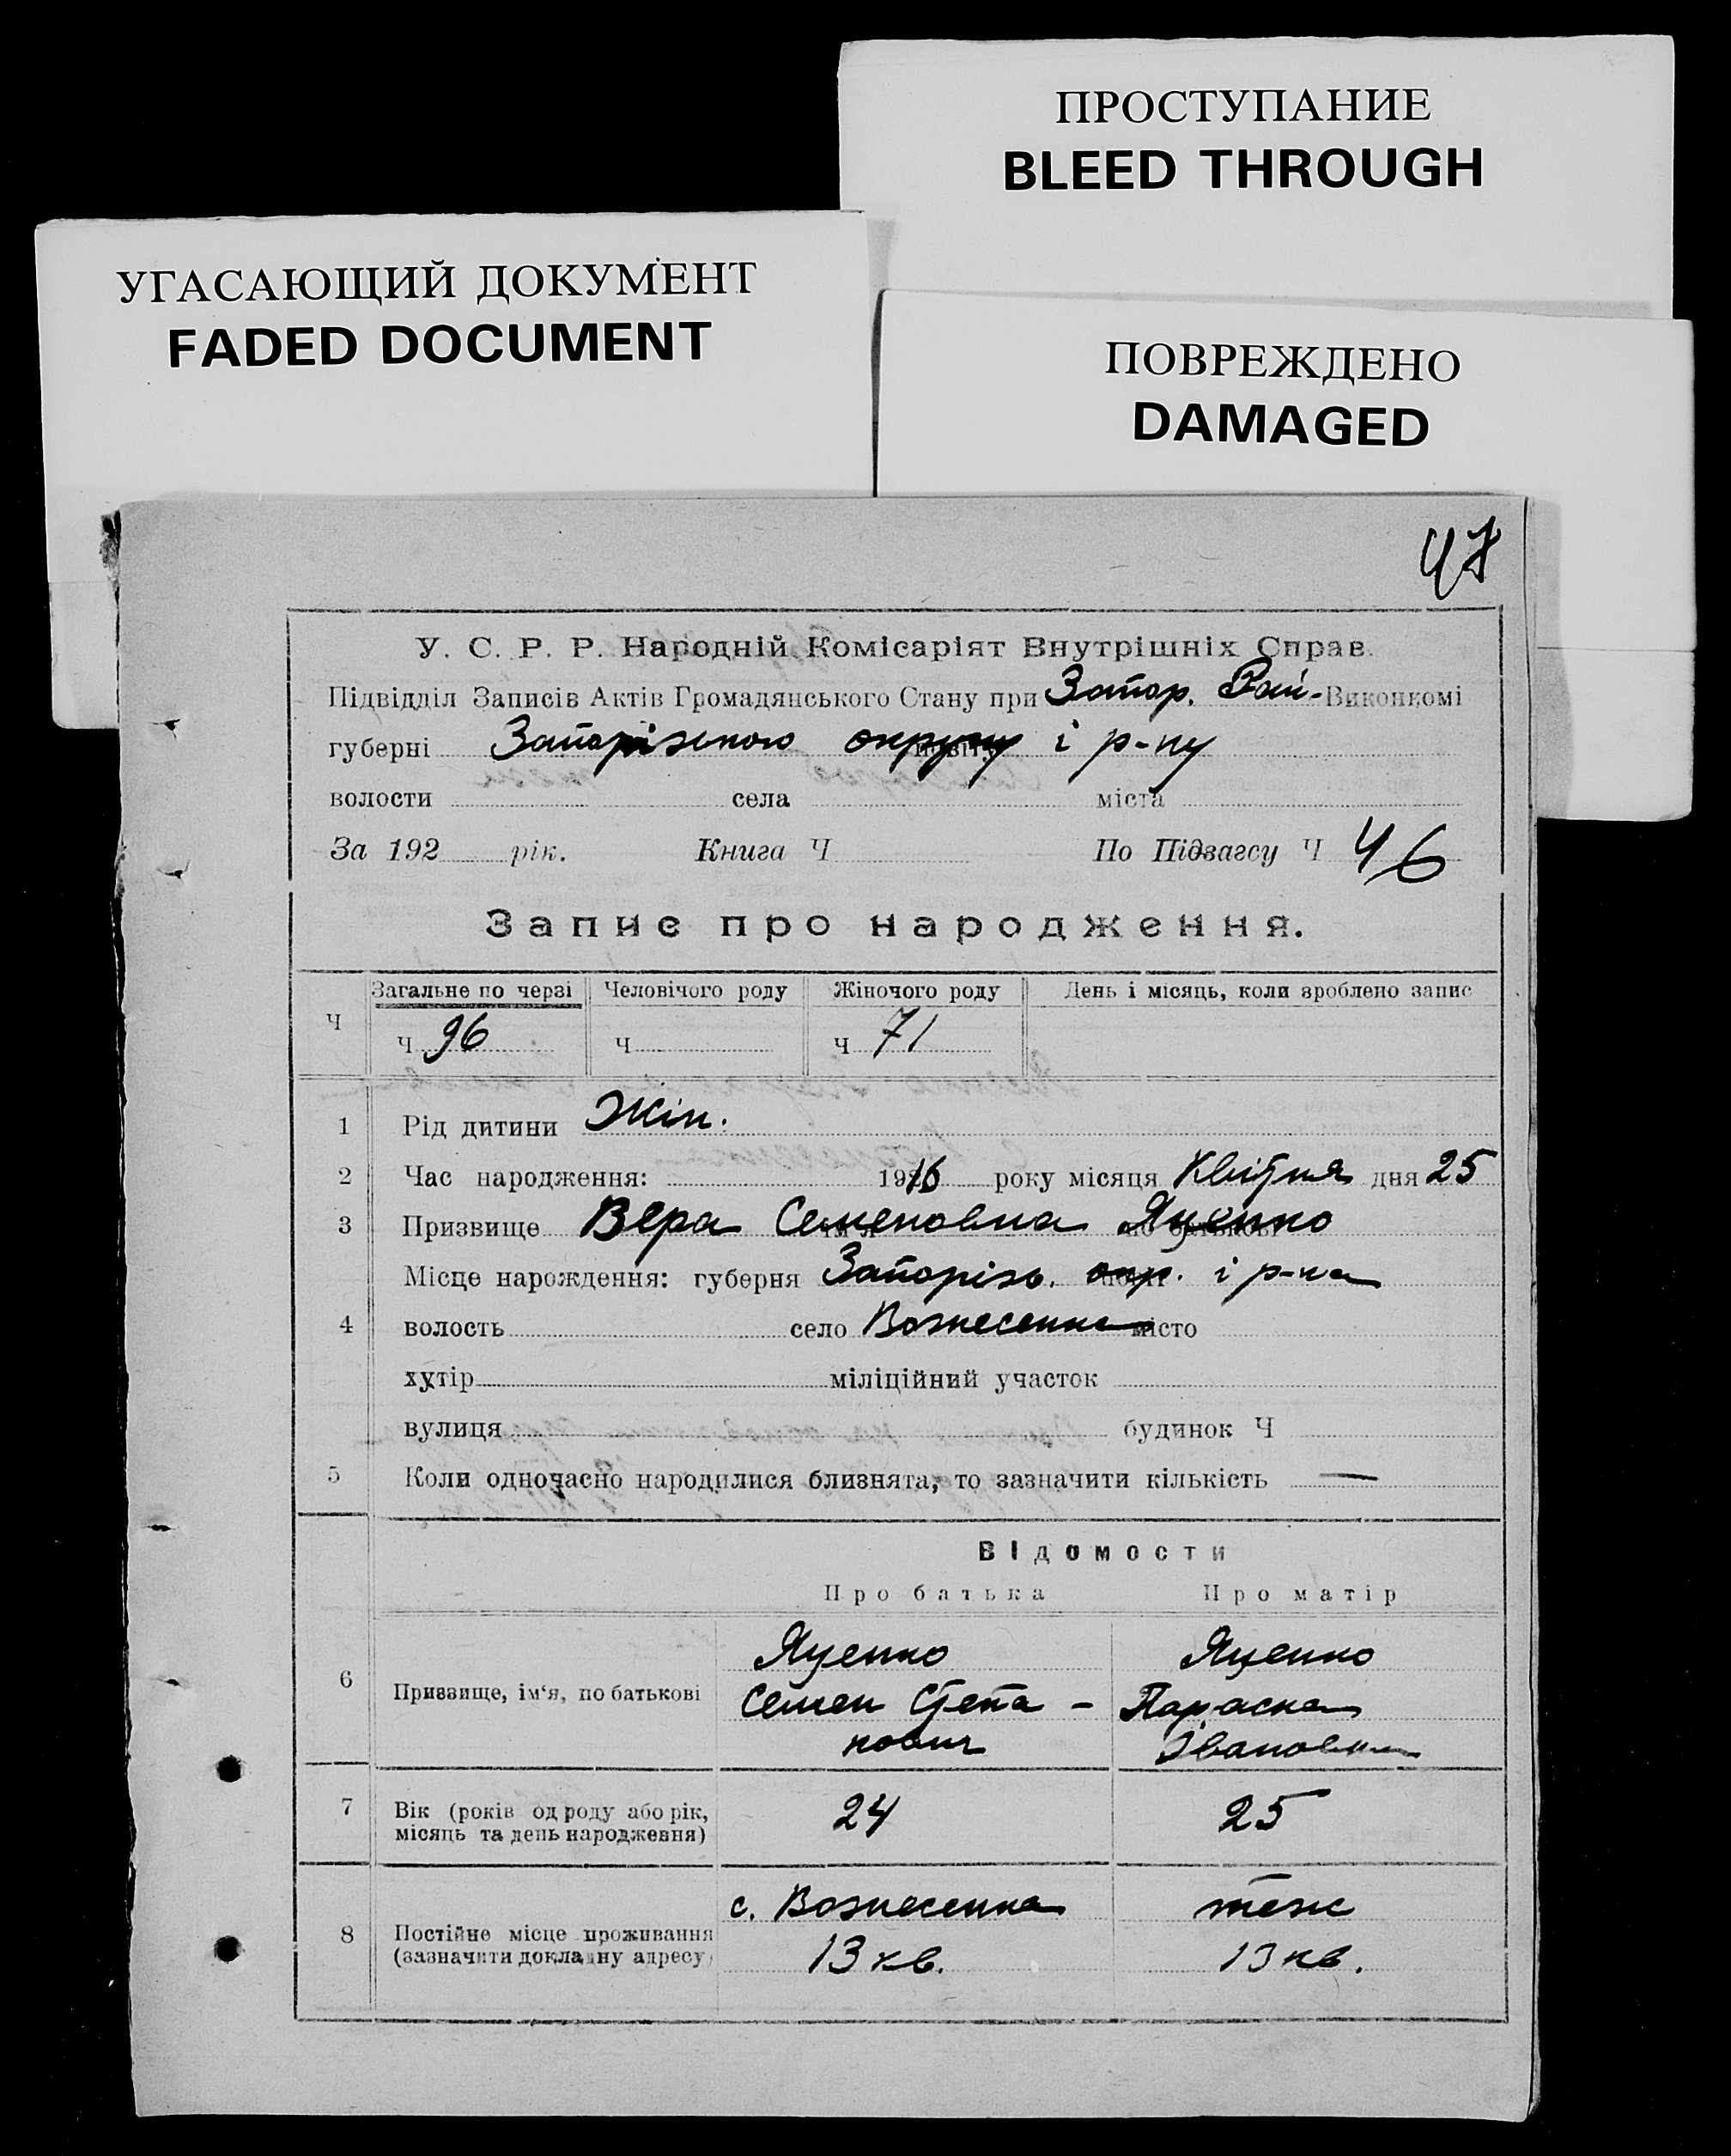 ПРОСТУПАНИЕ
BLEED THROUGH
УГАСАЮЩИЙ ДОКУМЕНТ
FADED DOCUMENT
ПОВРЕЖДЕНО
DAMAGED
47
У. С. Р. Р. Народній Комісаріят Внутрішніх Справ.
Підвідділ Записів Актів Громадянського Стану при Запор. Рай-Виконкомі
губерні Запорізького округу і р-ну
волости села міста
За 192 рік. Книга Ч По Підзагсу Ч 46
Запис про народження.
Ч Загальне по черзі Человічого роду Жіночого роду День і місяць, коли зроблено запис
Ч 96 Ч Ч 71
1 Рід дитини Жін.
2 Час народження: 1916 року місяця Квітня дня 25
3 Призвище Вера Семеновна Яценко
Місце народження: губерня Запорізь. окр. і р-на
4 волость село Вознесенка місто
хутір міліційний участок
вулиця будинок Ч
5 Коли одночасно народилися близнята, то зазначити кількість —
Відомости
Про батька Про матір
6 Призвище, ім'я, по батькові
Яценко Яценко
Семен Степа- Параска
нович Івановна
7 Вік (років од роду або рік, місяць та день народження) 24 25
8 Постійне місце проживання (зазначити докладну адресу)
с. Вознесенка теж
13 кв. 13 кв.